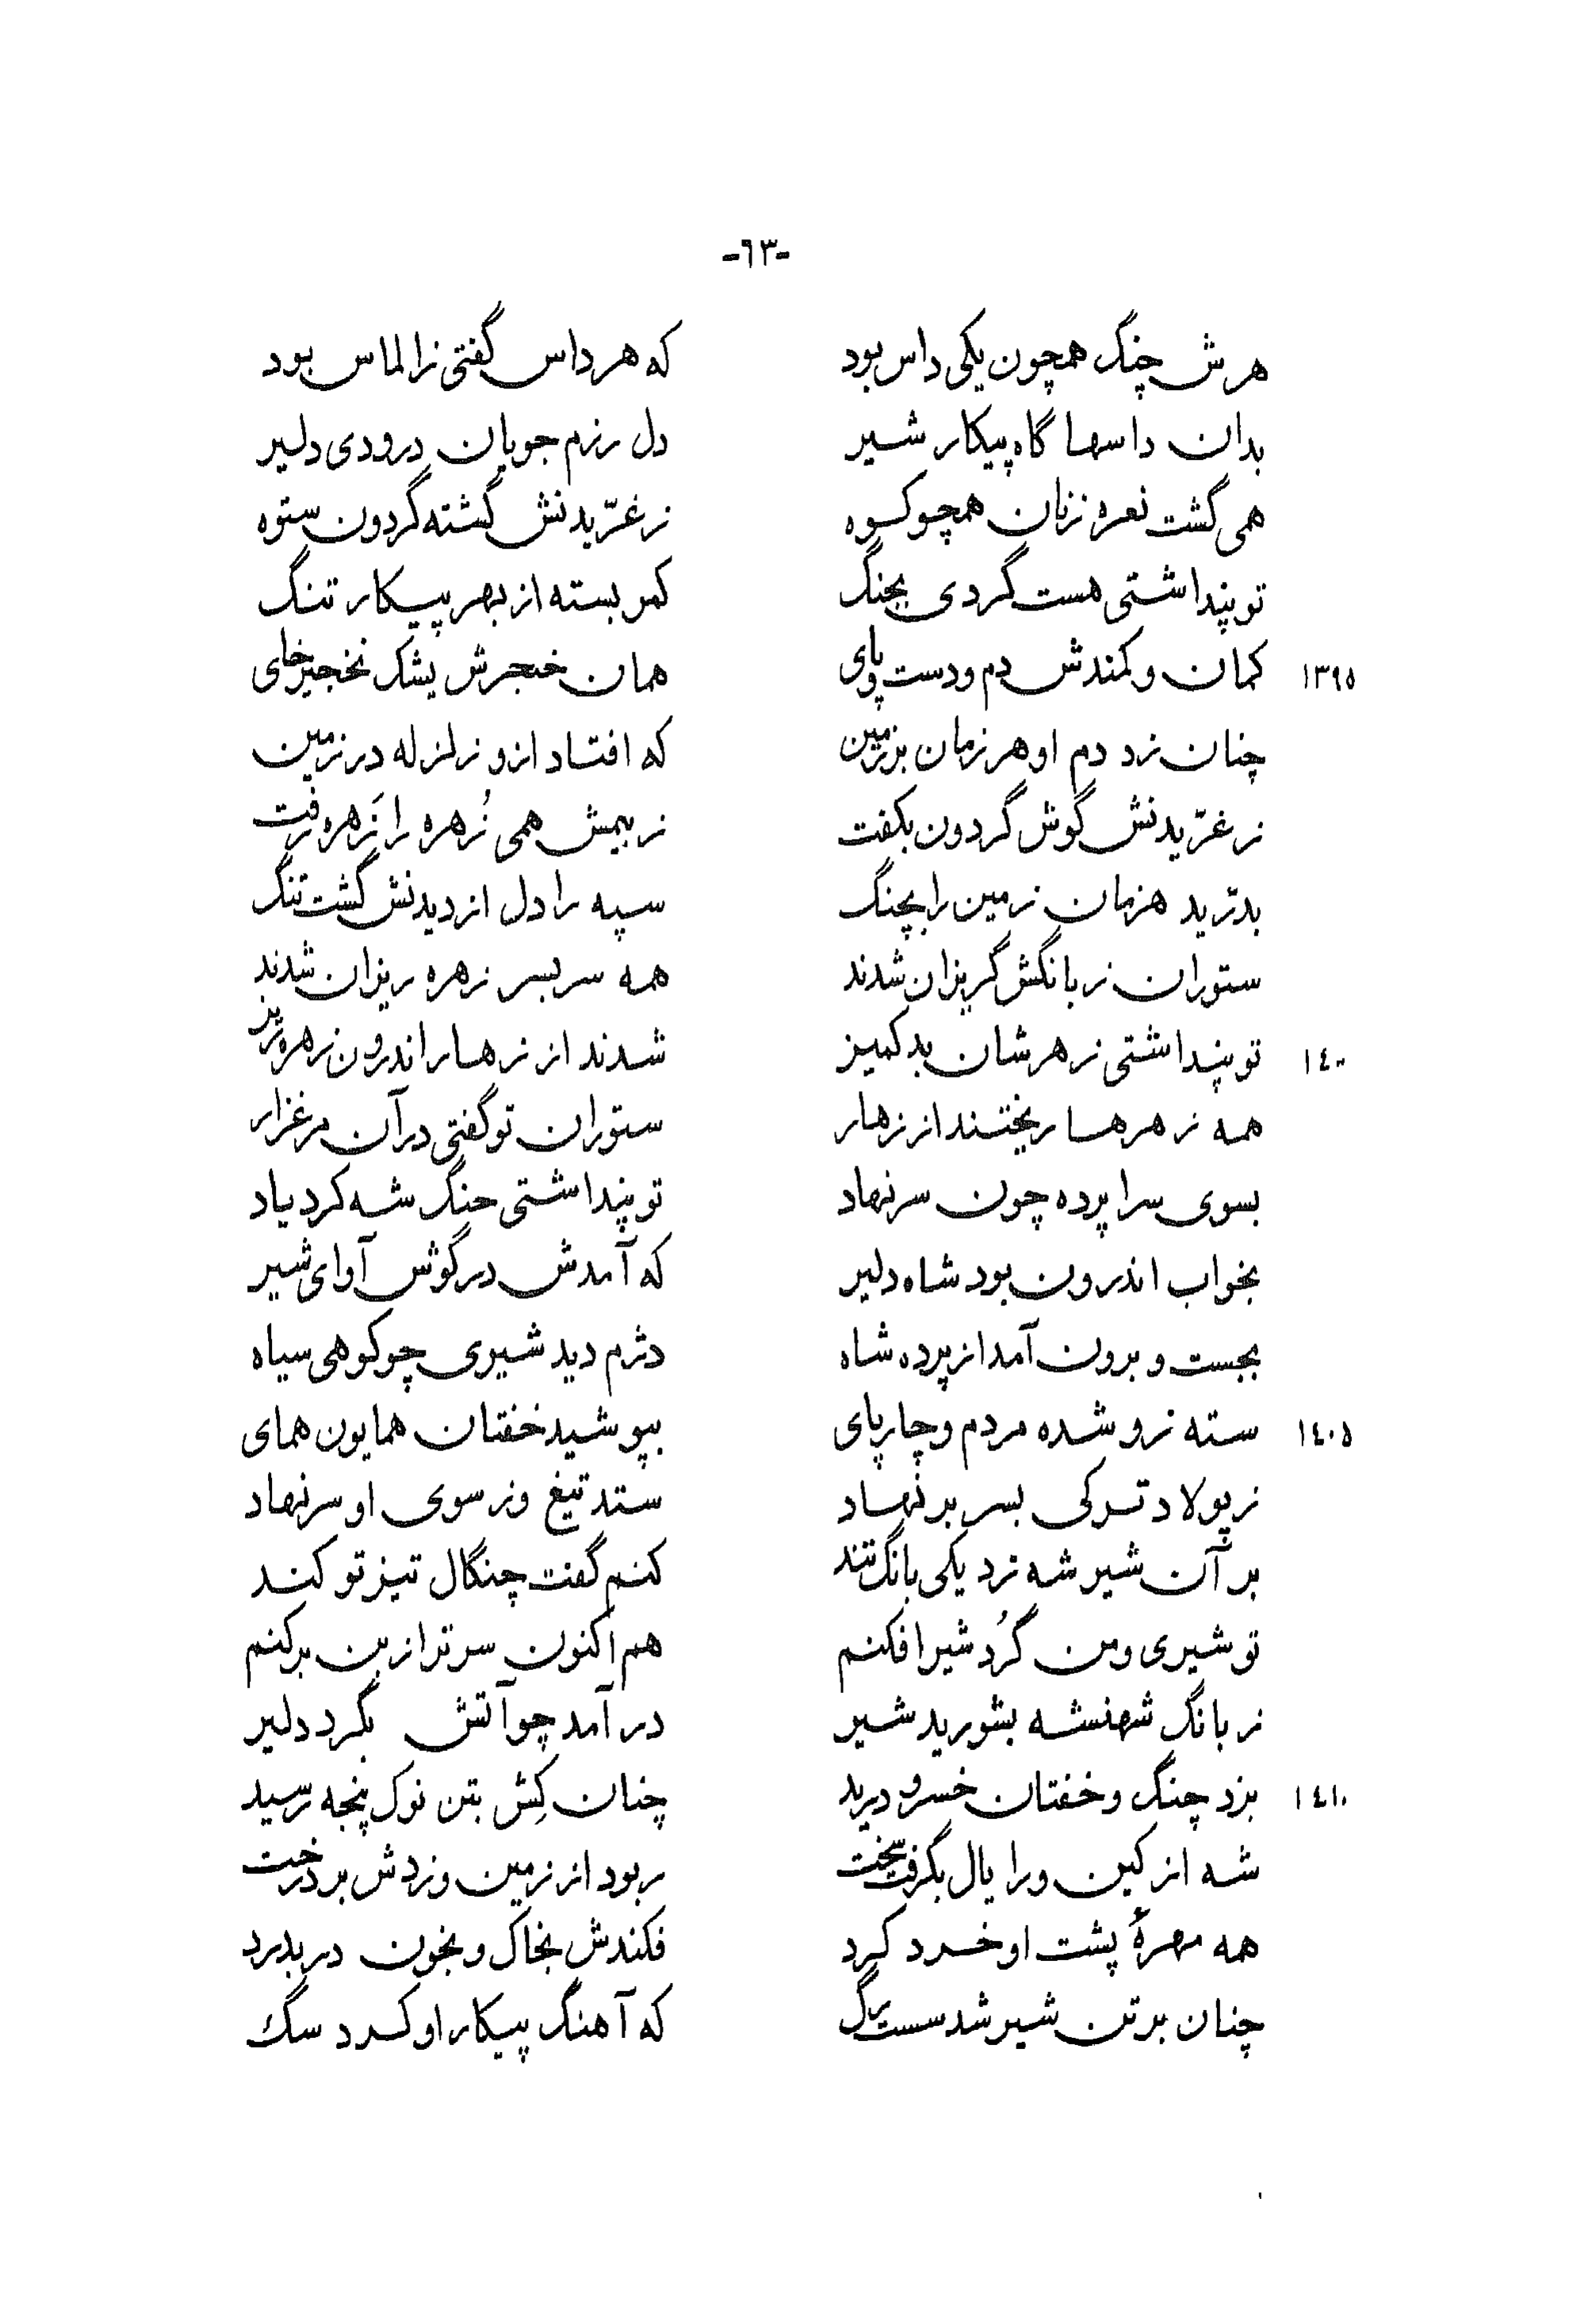 -٦٣-
هرش چنگ همچون یکی داس بود که هر داس گفتی ز الماس بود
بدان داسها گاه پیکار شیر دل رزم جویان درودی دلیر
همی گشت نعره زنان همچو کوه ز غرّیدنش گشته گردون ستوه
تو پنداشتی هست گردی بجنگ کمر بسته از بهر پیکار تنگ
١٣٩٥ کمان و کمندش دم و دست و پای همان خنجرش یشک نخجیر خای
چنان زد دم او هر زمان بر زمین که افتاد ازو زلزله در زمین
ز غرّیدنش گوش گردون بکفت ز بیمش همی زُهره را زَهره رفت
بدرّید هزمان زمین را بچنگ سپه را دل از دیدنش گشت تنگ
ستوران ز بانگش گریزان شدند همه سر بسر زهره ریزان شدند
١٤٠٠ تو پنداشتی زهرشان بد کمیز شدند از زهار اندرون زهره ریز
همه زهرها ریختند از زهار ستوران تو گفتی در آن مرغزار
بسوی سرا پرده چون سر نهاد تو پنداشتی جنگ شه کرد یاد
بخواب اندرون بود شاه دلیر که آمدش در گوش آوای شیر
بجست و برون آمد از پرده شاه دژم دید شیری چو کوهی سیاه
١٤٠٥ سته زو شده مردم و چارپای بپوشید خفتان همایون همای
ز پولاد ترکی بسر بر نهاد ستد تیغ وز سوی او سر نهاد
بر آن شیر شه زد یکی بانگ تند کنم گفت چنگال تیز تو کند
تو شیری و من گُرد شیر افکنم هم اکنون سرت را ز بن بر کنم
ز بانگ شهنشه بشورید شیر در آمد چو آتش بگرد دلیر
١٤١٠ بزد چنگ و خفتان خسرو درید چنان کِش بتن نوک پنجه رسید
شه از کین ورا یال بگرفت سخت ربود از زمین و زدش بر درخت
همه مهرهٔ پشت او خرد کرد فکندش بخاک و بخون در بدرد
چنان بر تن شیر شد سست رگ که آهنگ پیکار او کرد سگ